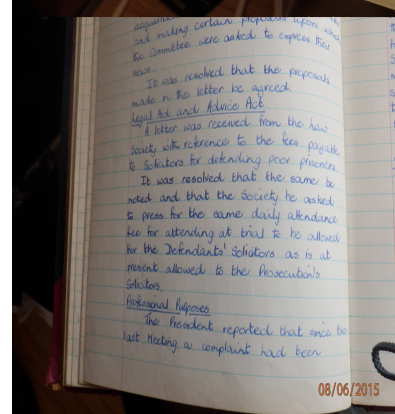 and making certain proposals upon which
the Committee were asked to express their
views.
It was resolved that the proposals
made in the letter be agreed.
Legal Aid and Advice Act
A letter was received from the Law
Society with reference to the fees payable
to Solicitors for defending poor prisoners.
It was resolved that the same be
noted and that the Society be asked
to press for the same daily attendance
fee for attending at trial to be allowed
for the Defendants' Solicitors as is at
present allowed to the Prosecution's
Solicitors.
Professional Purposes
The President reported that since
last Meeting a complaint had been
08/06/2015